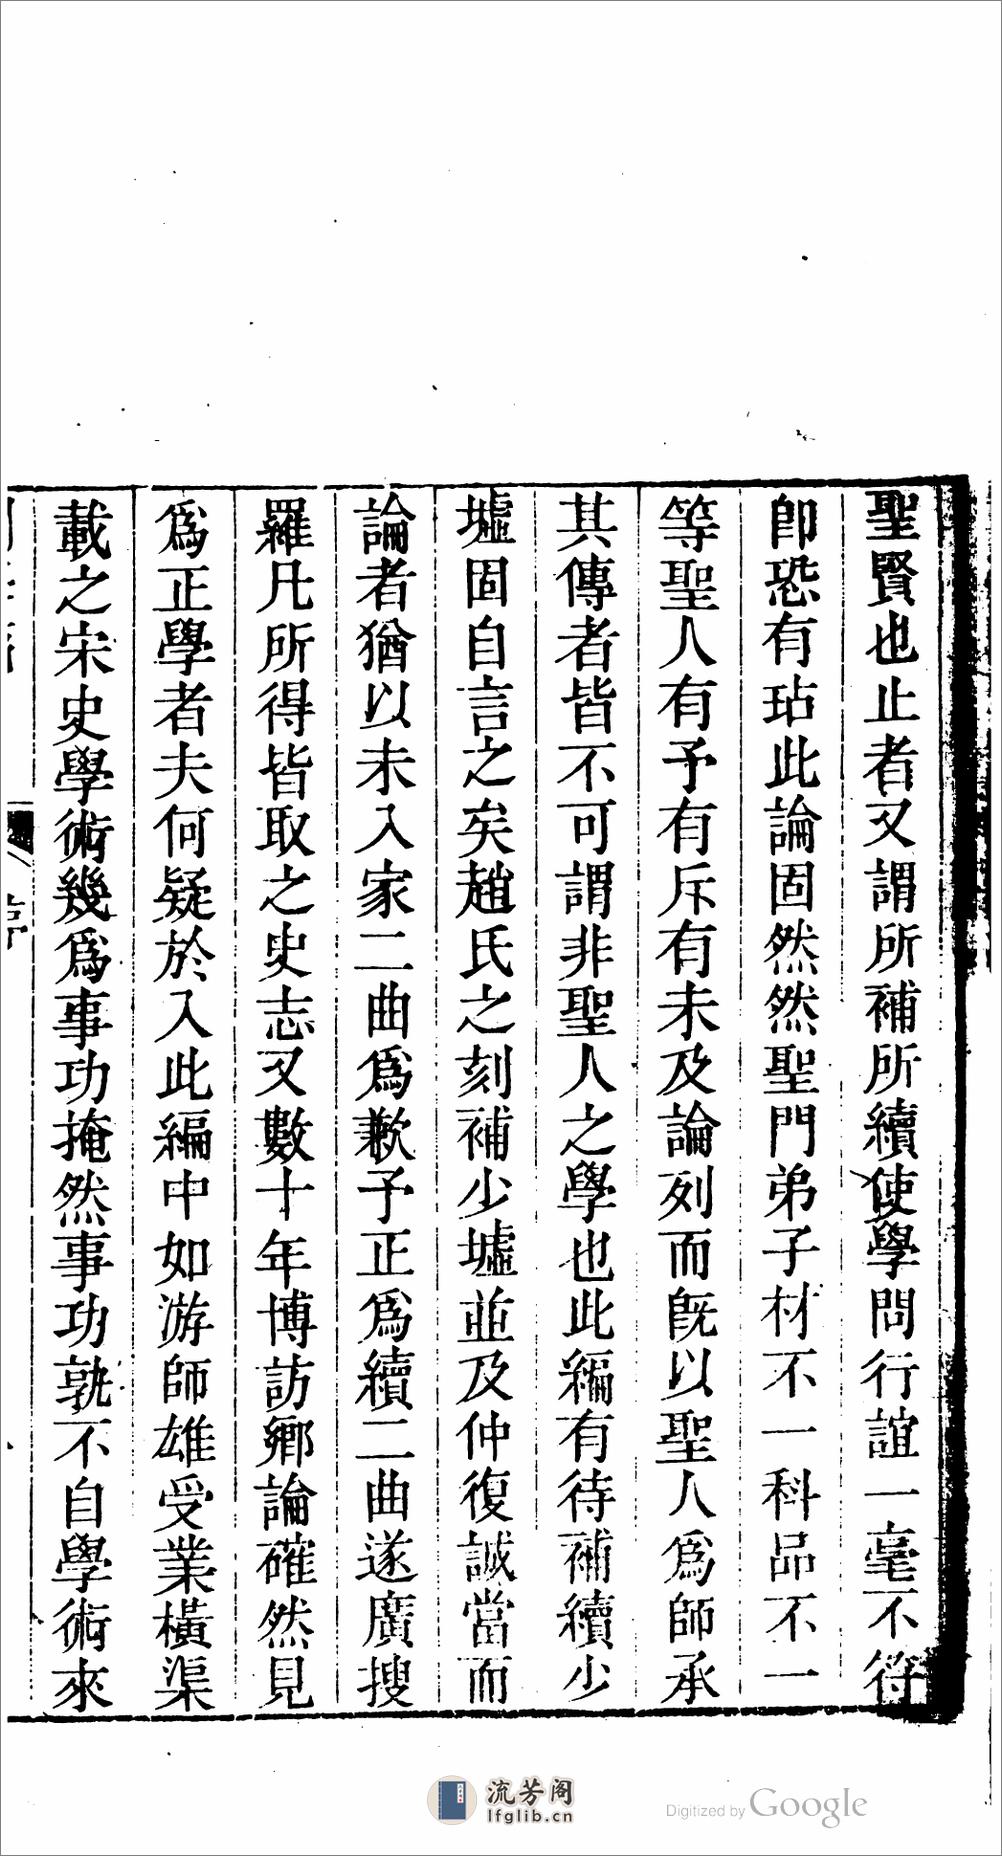 聖賢也止者又謂所補所續使學問行誼一毫不符
卽恐有玷此論固然然聖門弟子材不一科品不一
等聖人有予有斥有未及論列而旣以聖人爲師承
其傳者皆不可謂非聖人之學也此編有待補續少
墟固自言之矣趙氏之刻補少墟並及仲復誠當而
論者猶以未入家二曲爲歉予正爲續二曲遂廣搜
羅凡所得皆取之史志又數十年博訪鄉論確然見
爲正學者夫何疑於入此編中如游師雄受業橫渠
載之宋史學術幾爲事功掩然事功孰不自學術來
序
流芳阁
lfglib.cn
Digitized by Google